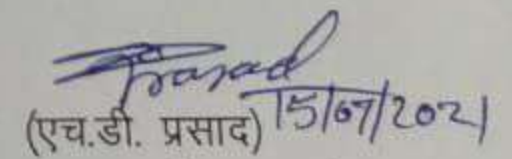 Prasad
(एच.डी. प्रसाद) 15/07/2021